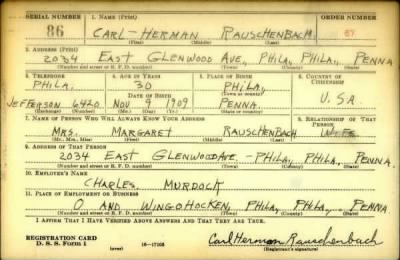 SERIAL NUMBER 1. NAME (Print) ORDER NUMBER
86 CARL-HERMAN RAUSCHENBACH 67
(First) (Middle) (Last)
2. ADDRESS (Print)
2034 EAST GLENWOOD AVE., PHILA., PHILA., PENNA
(Number and street or R. F. D. number) (Town) (County) (State)
3. TELEPHONE 4. AGE IN YEARS 5. PLACE OF BIRTH 6. COUNTRY OF CITIZENSHIP
PHILA. 30 PHILA.,
DATE OF BIRTH (Town or county)
JEFFERSON 6420 NOV 9 1909 PENNA. U.S.A.
(Exchange) (Number) (Mo.) (Day) (Yr.) (State or country)
7. NAME OF PERSON WHO WILL ALWAYS KNOW YOUR ADDRESS 8. RELATIONSHIP OF THAT PERSON
MRS. MARGARET RAUSCHENBACH WIFE
(Mr., Mrs., Miss) (First) (Middle) (Last)
9. ADDRESS OF THAT PERSON
2034 EAST GLENWOOD AVE.-PHILA., PHILA., PENNA.
(Number and street or R. F. D. number) (Town) (County) (State)
10. EMPLOYER'S NAME
CHARLES MURDOCK
11. PLACE OF EMPLOYMENT OR BUSINESS
O AND WINGOHOCKEN, PHILA, PHILA., PENNA
(Number and street or R. F. D. number) (Town) (County) (State)
I AFFIRM THAT I HAVE VERIFIED ABOVE ANSWERS AND THAT THEY ARE TRUE.
REGISTRATION CARD
D. S. S. Form 1 (over) 16-17105 Carl Herman Rauschenbach
(Registrant's signature)